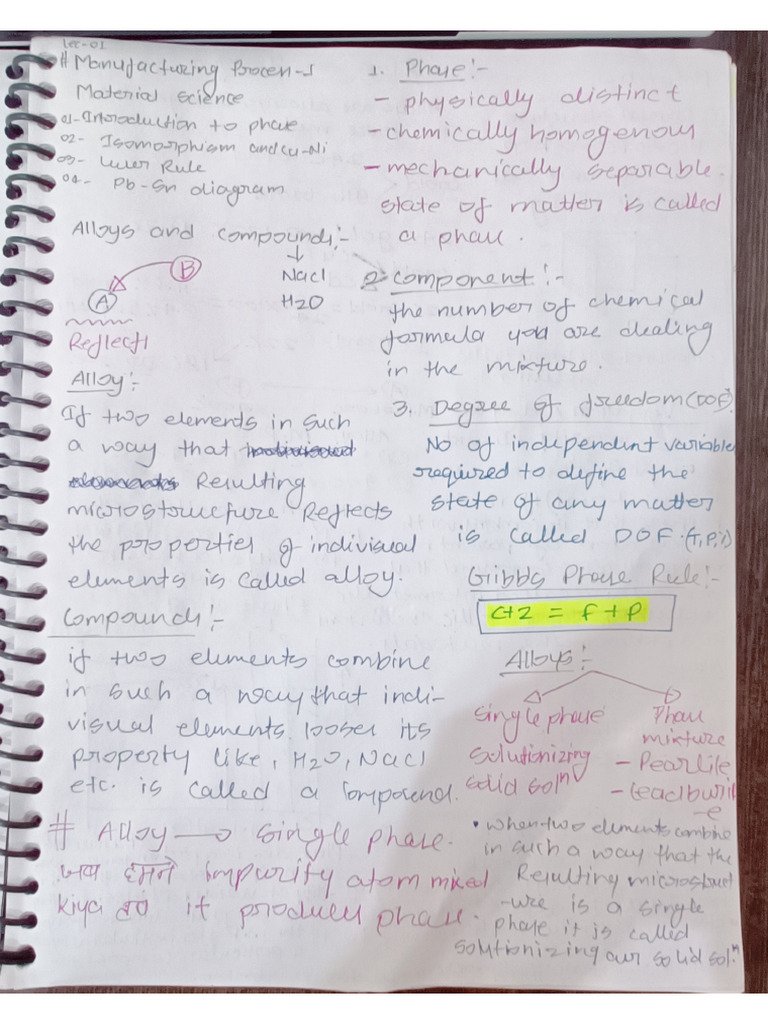 Lec-01
# Manufacturing Process-I
Material Science
01- Introduction to phase
02- Isomorphism and Cu-Ni
03- Lever Rule
04- Pb-Sn diagram
Alloys and compounds:-
NaCl
H2O
B
A
Reflect
Alloy:-
If two elements in such
a way that
Resulting
microstructure Reflects
the properties of indivisual
elements is called alloy.
Compounds:-
if two elements combine
in such a way that indi-
visual elements looses its
property like, H2O, NaCl
etc. is called a compound.
# Alloy → single phase.
जब हमने impurity atom mixed
kiya तो it produces phase.
1. Phase:-
- physically distinct
- chemically homogenous
- mechanically separable
state of matter is called
a phase.
2. component:-
the number of chemical
formula you are dealing
in the mixture.
3. Degree of freedom (DOF)
No of independent variable
required to define the
state of any matter
is called DOF.
Gibbs Phase Rule:-
C+2 = F+P
Alloys:-
Single phase
Solutionizing
Solid solⁿ
Phase
mixture
- Pearlite
- Leadburit
e
• when two elements combine
in such a way that the
Resulting microstruct
-ure is a single
phase it is called
solutionizing our solid solⁿ